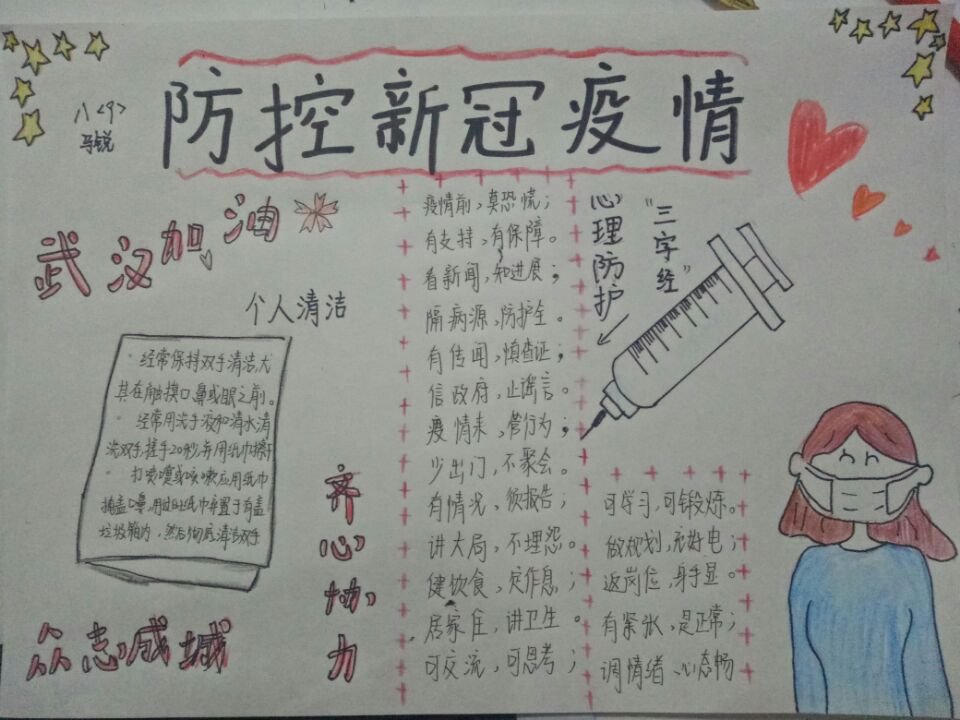 防控新冠疫情
八<9>
马锐
武汉加油
个人清洁
·经常保持双手清洁,尤
其在触摸口、鼻或眼之前。
·经常用洗手液和清水清
洗双手,搓手20秒,并用纸巾擦干
·打喷嚏或咳嗽应用纸巾
掩盖口鼻,用过纸巾弃置于有盖
垃圾箱内,然后彻底清洁双手
众志成城
齐心协力
心理防护
"三字经"
疫情前,莫恐慌;
有支持,有保障。
看新闻,知进展;
隔病源,防护全。
有传闻,慎查证;
信政府,止谣言。
疫情来,管行为;
少出门,不聚会。
有情况,须报告;
讲大局,不埋怨。
健饮食,定作息;
居家住,讲卫生。
可交流,可思考;
可学习,可锻炼。
做规划,充好电;
返岗位,身手显。
有紧张,是正常;
调情绪、心态畅